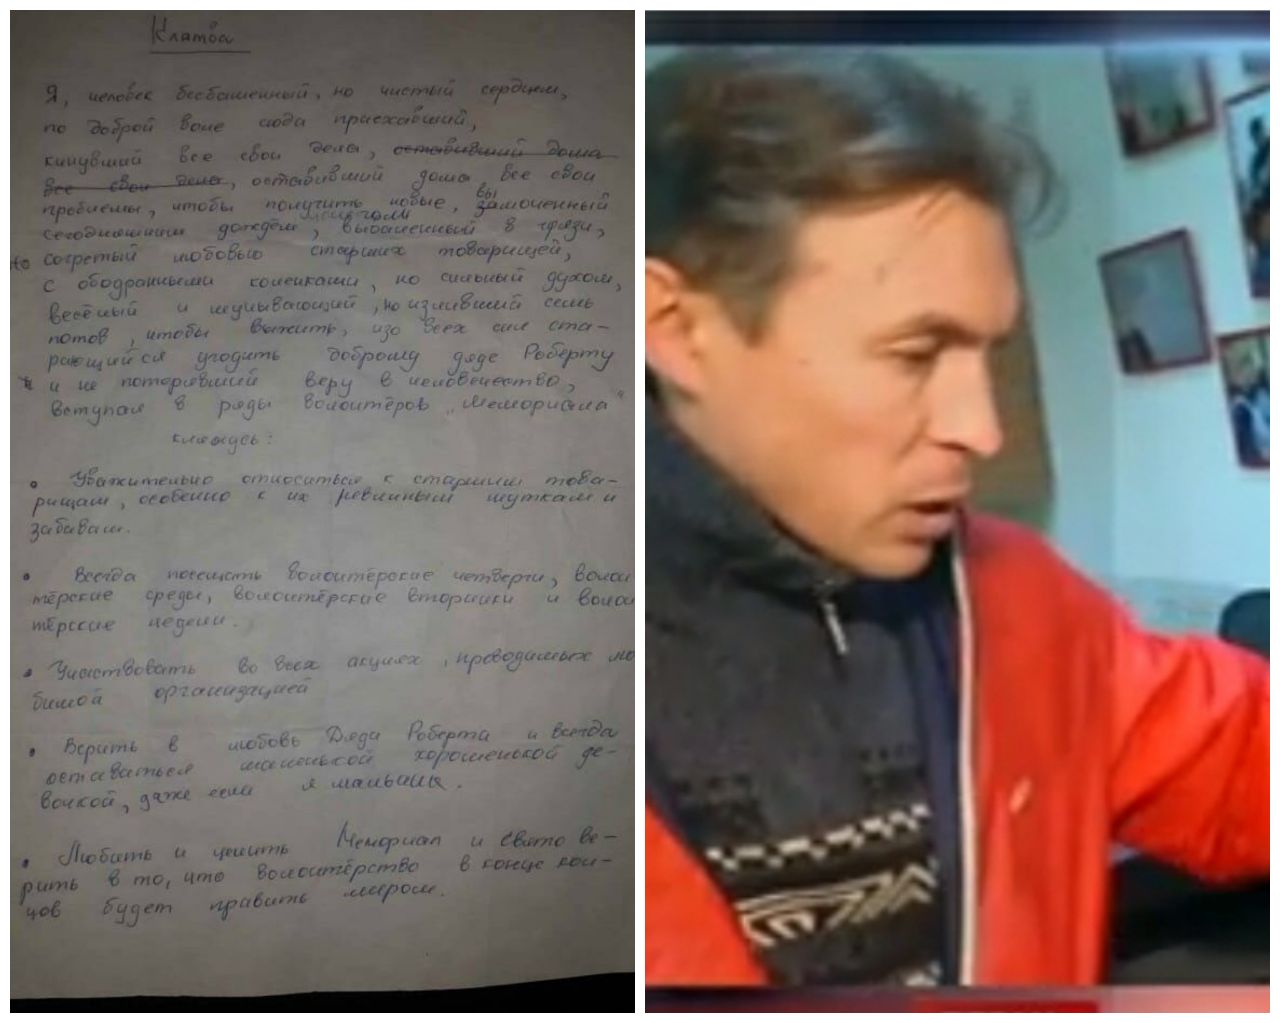 Клятва
Я, человек бесбашенный, но чистый сердцем,
по доброй воле сюда приехавший,
кинувший все свои дела, оставивший дома
все свои дела, оставивший дома все свои
проблемы, чтобы получить новые, вы замоченный
сегодняшним дождём, вывалянный в грязи,
но согретый любовью старших товарищей,
с ободранными коленками, но сильный духом,
весёлый и неунывающий, но изливший семь
потов, чтобы выжить, изо всех сил ста-
рающийся угодить доброму дяде Роберту
и не потерявший веру в человечество,
вступая в ряды волонтёров „Мемориала"
клянусь:
• Уважительно относиться к старшим това-
рищам, особенно к их невинным шуткам и
забавам.
• Всегда посещать волонтёрские четверги, волон
тёрские среды, волонтёрские вторники и волон
тёрские недели.
• Участвовать во всех акциях, проводимых лю
бимой организацией
• Верить в любовь Дяди Роберта и всегда
оставаться маленькой хорошенькой де-
вочкой, даже если я мальчик.
• Любить и ценить Мемориал и свято ве-
рить в то, что волонтёрство в конце кон-
цов будет править миром.